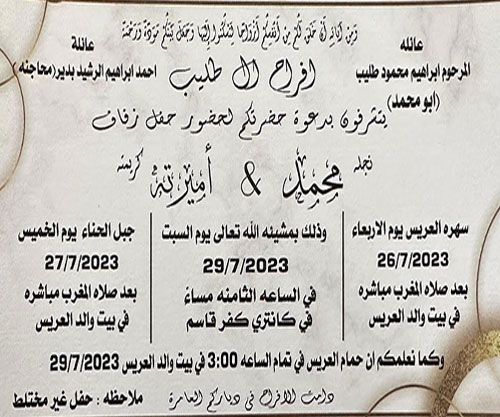 وَمِنْ آيَاتِهِ أَنْ خَلَقَ لَكُم مِّنْ أَنفُسِكُمْ أَزْوَاجًا لِّتَسْكُنُوا إِلَيْهَا وَجَعَلَ بَيْنَكُم مَّوَدَّةً وَرَحْمَةً
عائله
المرحوم ابراهيم محمود طليب
(ابو محمد)
افراح ال طليب
عائلة
احمد ابراهيم الرشيد بدير(محاجنه)
يتشرفون بدعوة حضرتكم لحضور حفل زفاف
نجله
محمد & أميرته
كريمته
سهره العريس يوم الاربعاء
26/7/2023
بعد صلاه المغرب مباشره
في بيت والد العريس
وذلك بمشيئه الله تعالى يوم السبت
29/7/2023
في الساعه الثامنه مساءً
في كانتري كفر قاسم
جبل الحناء يوم الخميس
27/7/2023
بعد صلاه المغرب مباشره
في بيت والد العريس
وكما نعلمكم ان حمام العريس في تمام الساعه 3:00 في بيت والد العريس 29/7/2023
دامت الافراح في دياركم العامرة
ملاحظه : حفل غير مختلط